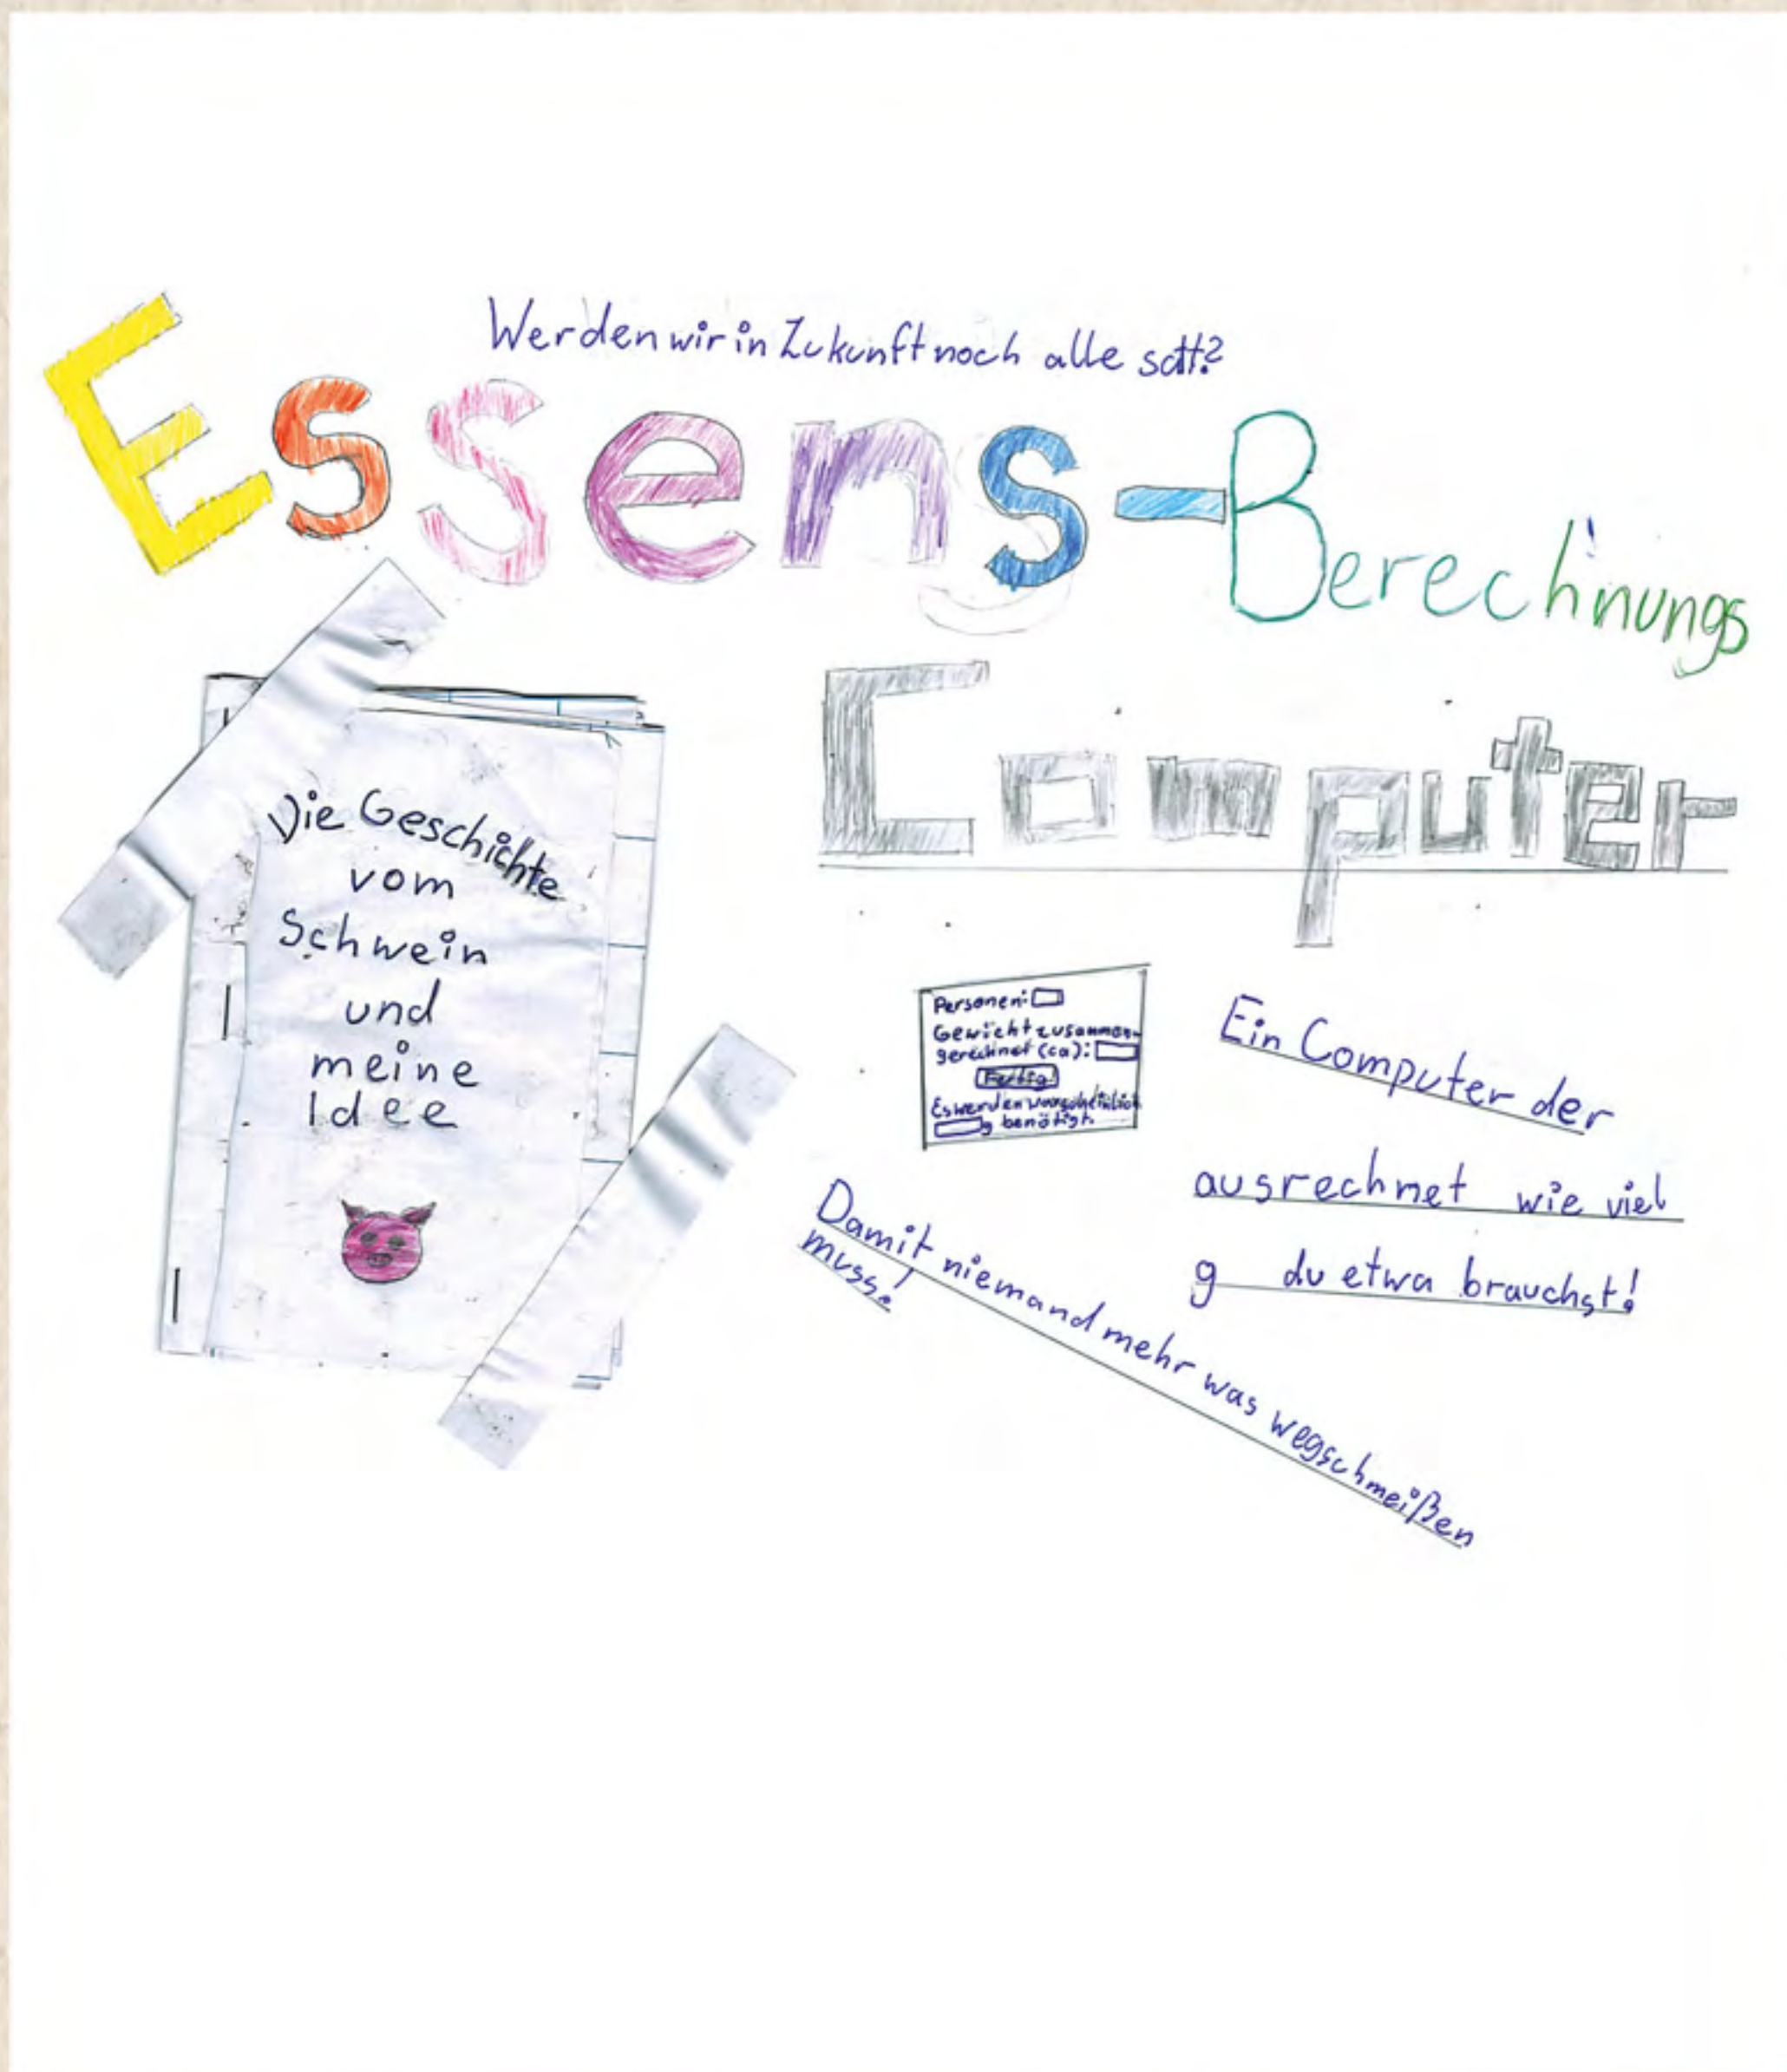 Werden wir in Zukunft noch alle satt?
Essens-Berechnungs
Computer
Die Geschichte
vom
Schwein
und
meine
Idee
Personen:
Gewicht zusammen-
gerechnet (ca):
Fertig
Es werden warscheinlich
g benötigt.
Ein Computer der
ausrechnet wie viel
g du etwa brauchst!
Damit niemand mehr was wegschmeißen
muss!